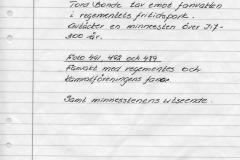 Tord Bonde tar emot fanvakten
i regementets fritidspark.
Avtäcker en minnessten över I17-
300 år.
Foto 491, 492 och 489
Fanvakt med regementes och
kamratföreningens fanor
Samt minnesstenens utseende.